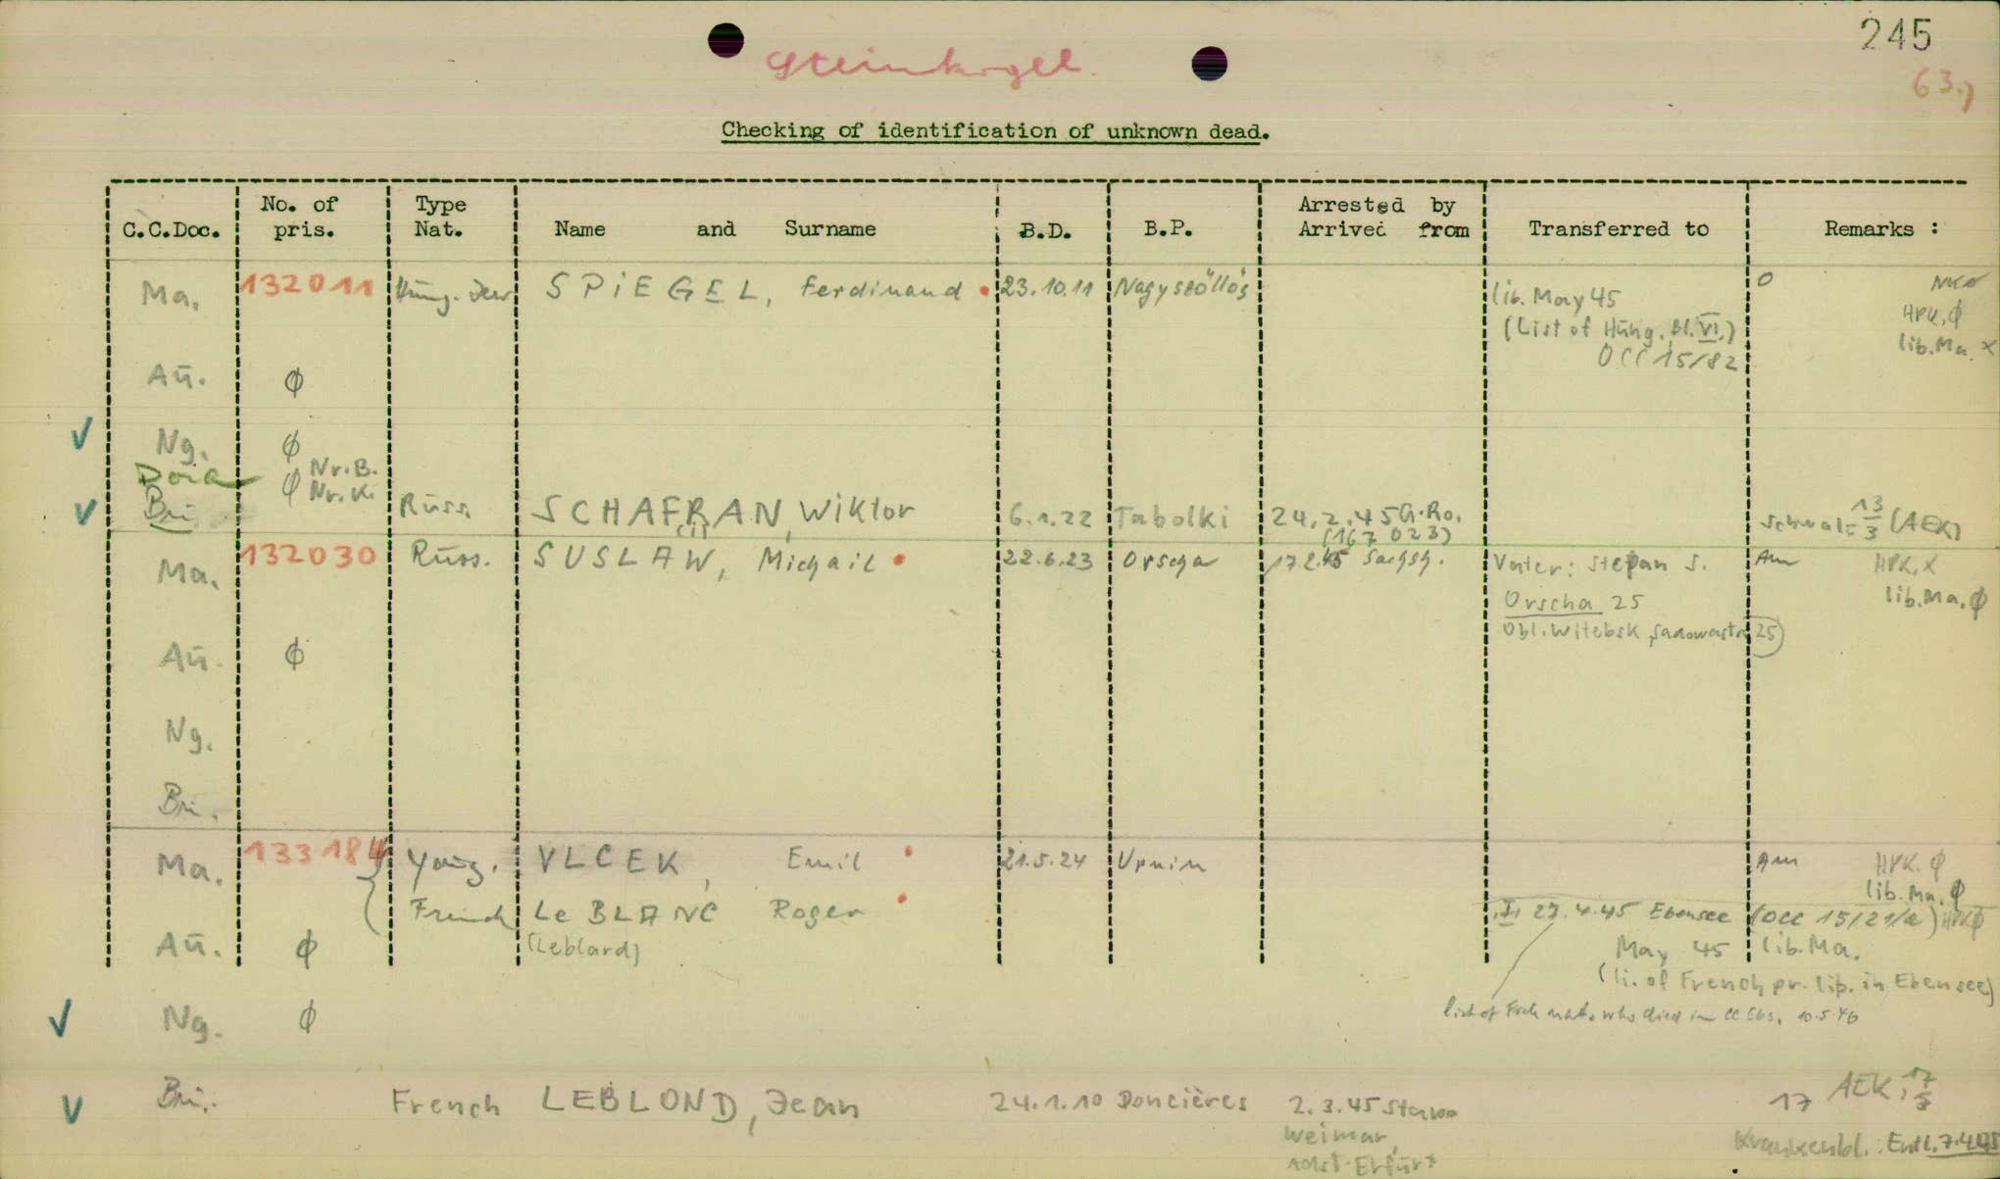 245
Steinkogel.
63.)
Checking of identification of unknown dead.
C.C.Doc. No. of pris. Type Nat. Name and Surname B.D. B.P. Arrested by Arrived from Transferred to Remarks :
Ma. 132011 Hung. Jew SPIEGEL, Ferdinand 23.10.11 Nagyszöllös lib. May 45 O
(List of Hung. Bl. VI.) HPK, ϕ
OCC 15/82 lib. Ma. X
Aū. ϕ
Ng. ϕ
Dora ϕ Nr. B.
Nr. Ki
Bu Russ. SCHAFRAN, Wiktor 6.1.22 Tabolki 24.2.45 G.Ro. 13/3 (AEK)
(ij) (167 023)
Ma. 132030 Russ. SUSLAW, Michail 22.6.23 Orscha 17.2.45 Sachsh. Vater: Stepan S. Am HPK, X
Orscha 25 lib. Ma. ϕ
Obl. Witebsk, Sadowastr 25)
Aū. ϕ
Ng.
Bu.
Ma. 133184 Youg. VLCEK, Emil 21.5.24 Am HPK. ϕ
lib. Ma. ϕ
French Le BLANC Roger I, 27.4.45 Ebensee (OCC 15/21/a) HPKϕ
Aū. ϕ (Leblard) May 45 lib. Ma.
(li. of French pr. lib. in Ebensee)
Ng. ϕ list of Frch nat. who died in CC Ebs. 10.5.46
Bu. French LEBLOND, Jean 24.1.10 Doncières 2.3.45 17 AEK
Weimar,
Erfurt Krankenbl. Entl. 7.4.45